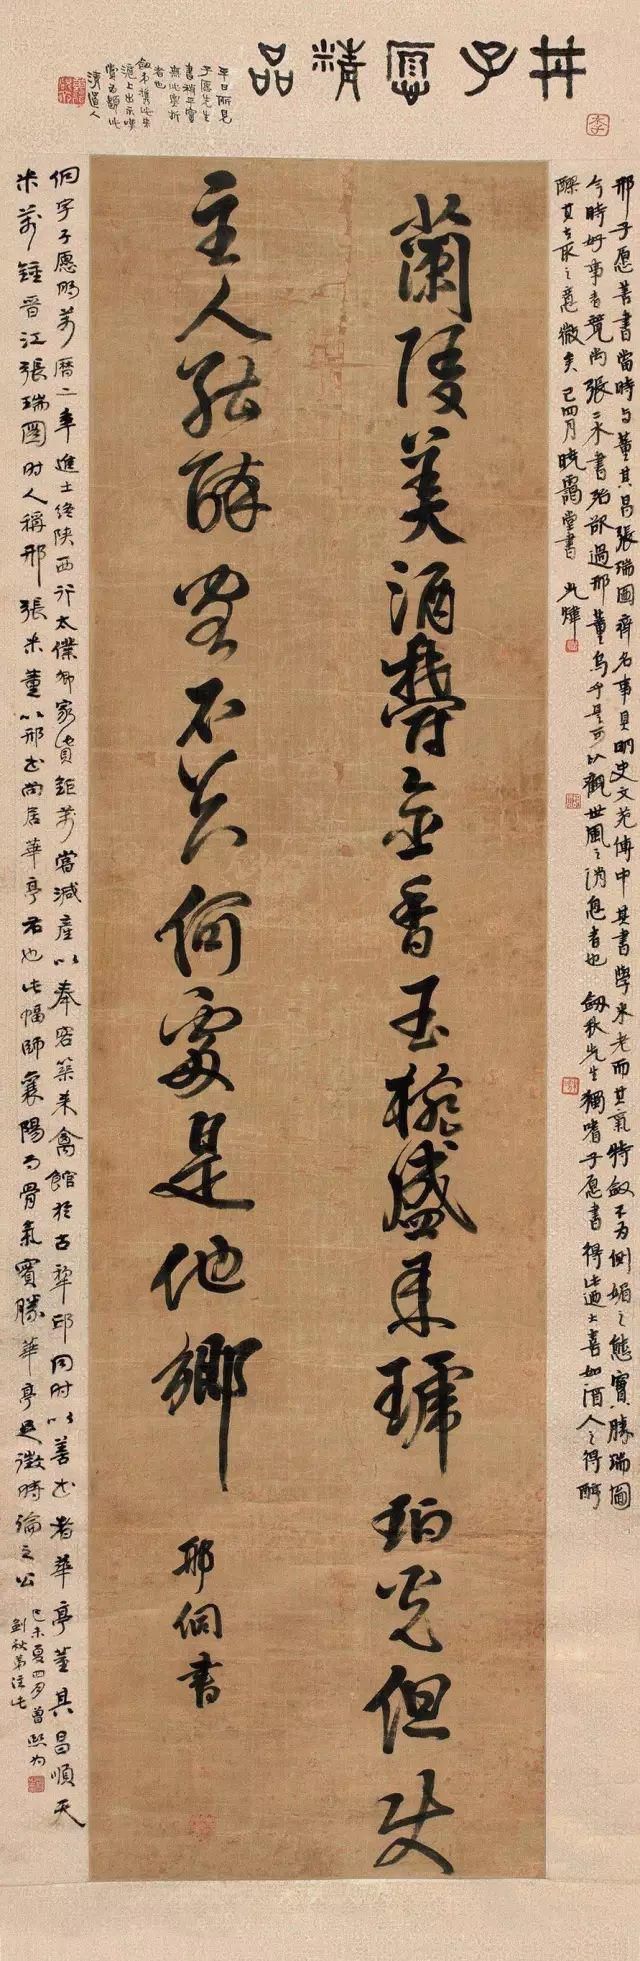 邢子愿精品
平日所見
子愿先生
書稍平實
無此奧折
者也
劍弟攜此來
滬上出示嘆
賞為題此
清道人
邢子愿善書當時与董其昌張瑞圖齊名事具明史文苑傳中其書學米老而其氣特斂不为側媚之態實勝瑞圖
今時好事者競尚張二水書殆欲過邢董烏乎是可以觀世風之消息者也 劒秋先生獨嗜子愿書得此過大喜如酒人之得醇
醪其去取之意微矣 己四月 晓靄堂書
蘭陵美酒鬱金香玉椀盛来琥珀光但使
主人能醉客不知何處是他鄉
邢侗書
侗字子愿明萬曆二年進士终陝西行太僕卿家貲鉅萬嘗減產以奉客築来禽館於古犁邱同时以善書者華亭董其昌順天
米萬鍾晉江張瑞圖时人稱邢張米董以邢書尚居華亭右也此幅師襄陽而骨氣實勝華亭足徵時論之公
己未夏四月曾熙为
劍秋弟注此